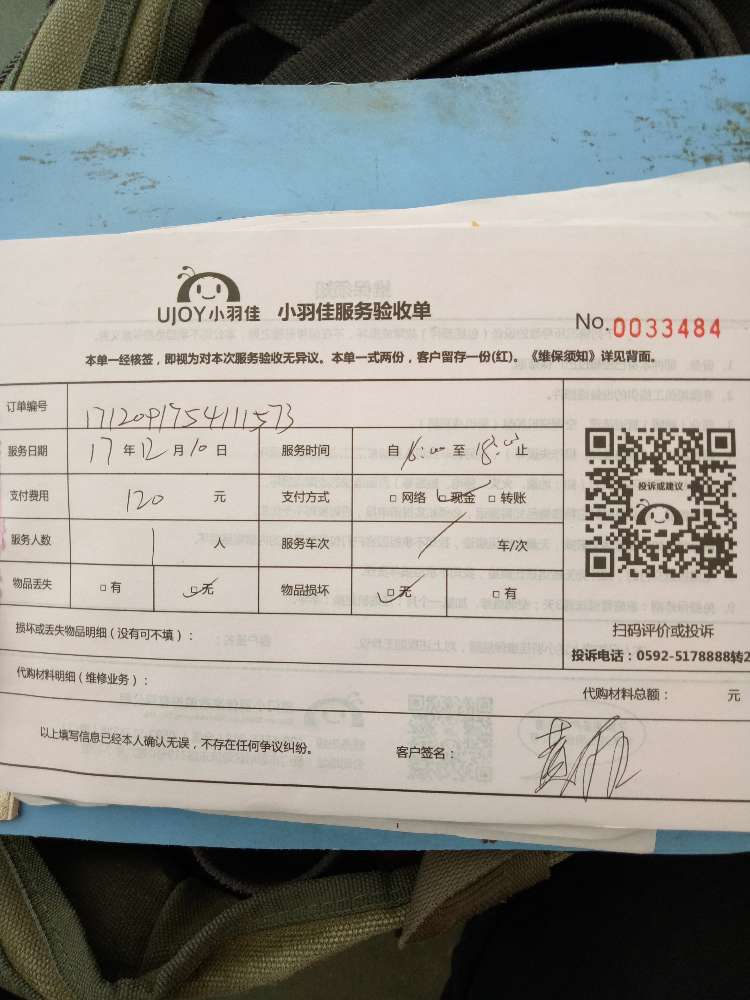 UJOY小羽佳 小羽佳服务验收单
No.0033484
本单一经核签，即视为对本次服务验收无异议。本单一式两份，客户留存一份(红)。《维保须知》详见背面。
订单编号 1712091754111573
服务日期 17年12月10日 服务时间 自16:00至18:00止
支付费用 120 元 支付方式 □网络 □现金 □转账
服务人数 1 人 服务车次 车/次
物品丢失 □有 □无 物品损坏 □无 □有
投诉或建议
扫码评价或投诉
投诉电话：0592-5178888转2
损坏或丢失物品明细（没有可不填）：
代购材料明细（维修业务）：
代购材料总额： 元
以上填写信息已经本人确认无误，不存在任何争议纠纷。 客户签名： 黄